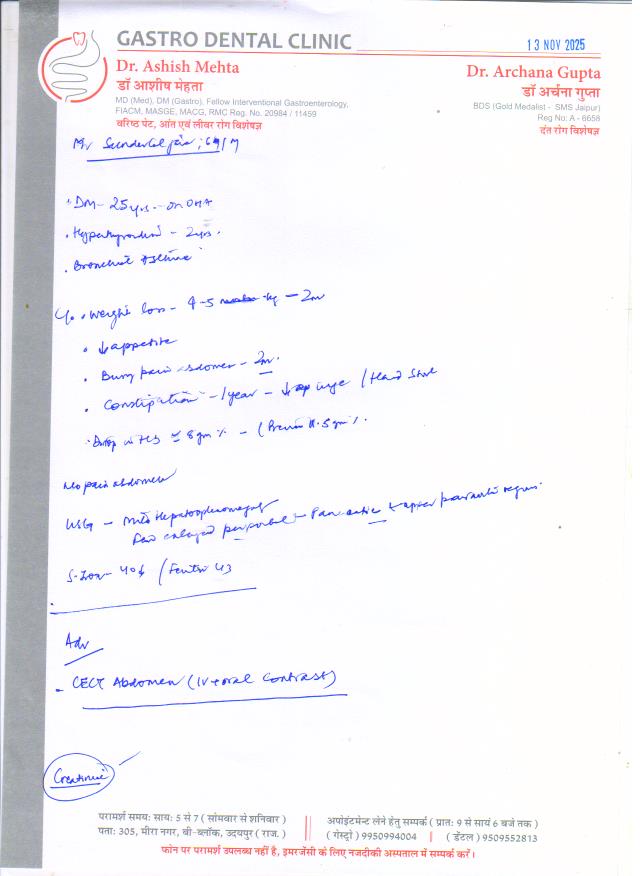 GASTRO DENTAL CLINIC
13 NOV 2025
Dr. Ashish Mehta
डॉ आशीष मेहता
MD (Med), DM (Gastro), Fellow Interventional Gastroenterology,
FIACM, MASGE, MACG, RMC Reg. No. 20984 / 11459
वरिष्ठ पेट, आंत एवं लीवर रोग विशेषज्ञ
Dr. Archana Gupta
डॉ अर्चना गुप्ता
BDS (Gold Medalist - SMS Jaipur)
Reg No: A - 6658
दंत रोग विशेषज्ञ
Mr Sunderlal Jain, 69/M
• DM - 25 yrs - on OHA
- 2 yrs.
• Bronchial Asthma
c/o • Weight loss - 4-5 kg - 2m
• ↓ appetite
• pain abdomen - 2m.
• Constipation - 1 year - ↓ urge / Hard Stool
• Drop in Hb ≃ 8 gm% - (Previous 11.5 gm%.
No pain abdomen
USG - Mild Hepatosplenomegaly
enlarged periportal - Pancreatic & upper region.
S. Iron - 40 / 43
Adv
- CECT Abdomen (IV + oral Contrast)
Creatinine
परामर्श समय: सायं: 5 से 7 ( सोमवार से शनिवार )
पता: 305, मीरा नगर, बी-ब्लॉक, उदयपुर ( राज. )
अपोइंटमेन्ट लेने हेतु सम्पर्क ( प्रात: 9 से सायं 6 बजे तक )
( गेस्ट्रो ) 9950994004 | ( डेंटल ) 9509552813
फोन पर परामर्श उपलब्ध नहीं है, इमरजेंसी के लिए नजदीकी अस्पताल में सम्पर्क करें।